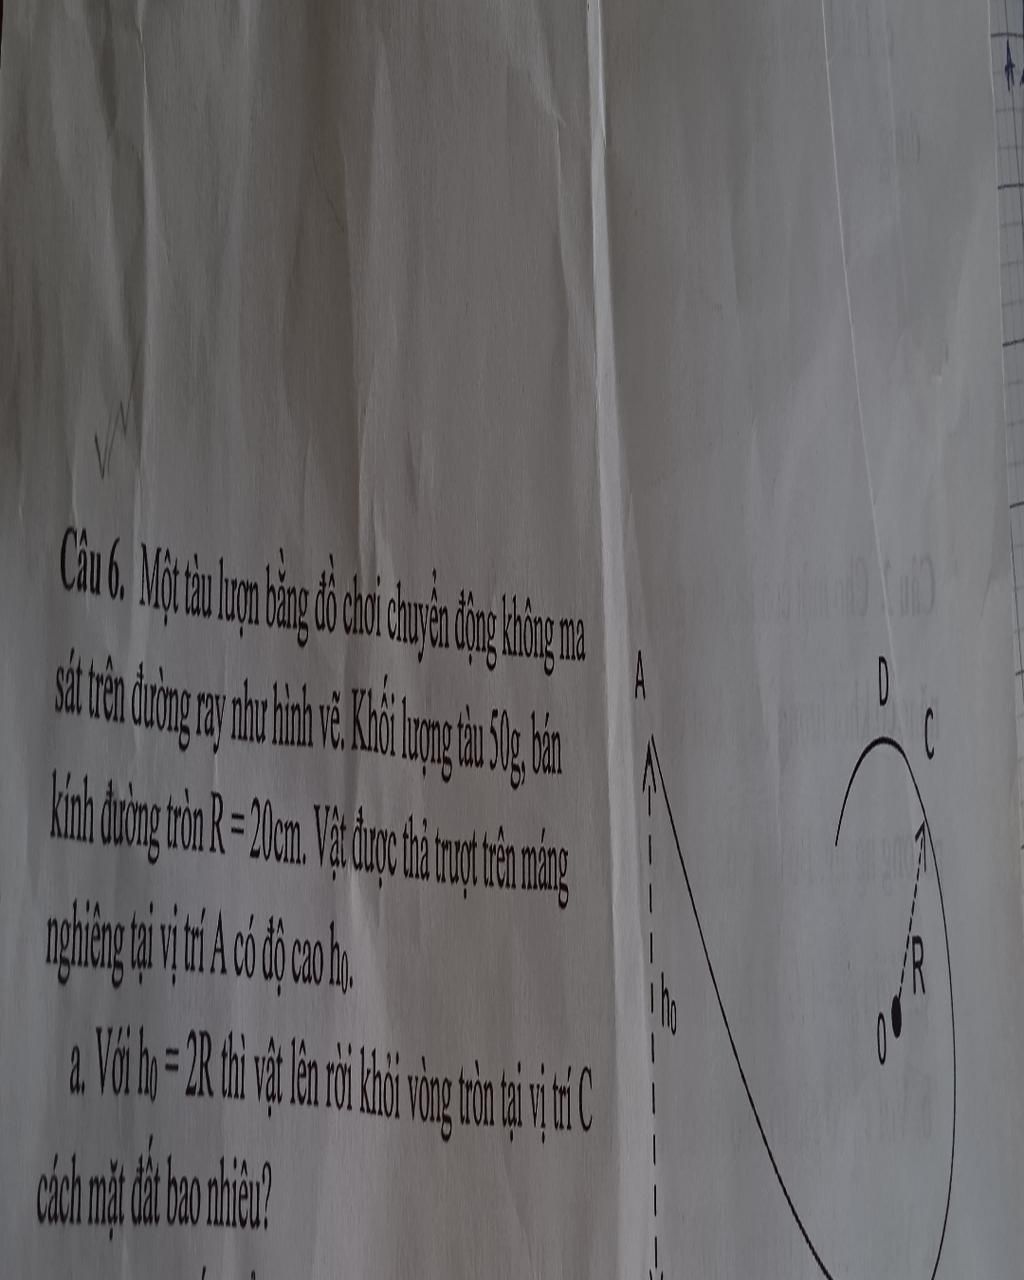 Câu 6. Một tàu lượn bằng đồ chơi chuyển động không ma
sát trên đường ray như hình vẽ. Khối lượng tàu 50g, bán
kính đường tròn R = 20cm. Vật được thả trượt trên máng
nghiêng tại vị trí A có độ cao h₀.
a. Với h₀ = 2R thì vật lên rời khỏi vòng tròn tại vị trí C
cách mặt đất bao nhiêu?
A
D
C
R
h₀
O